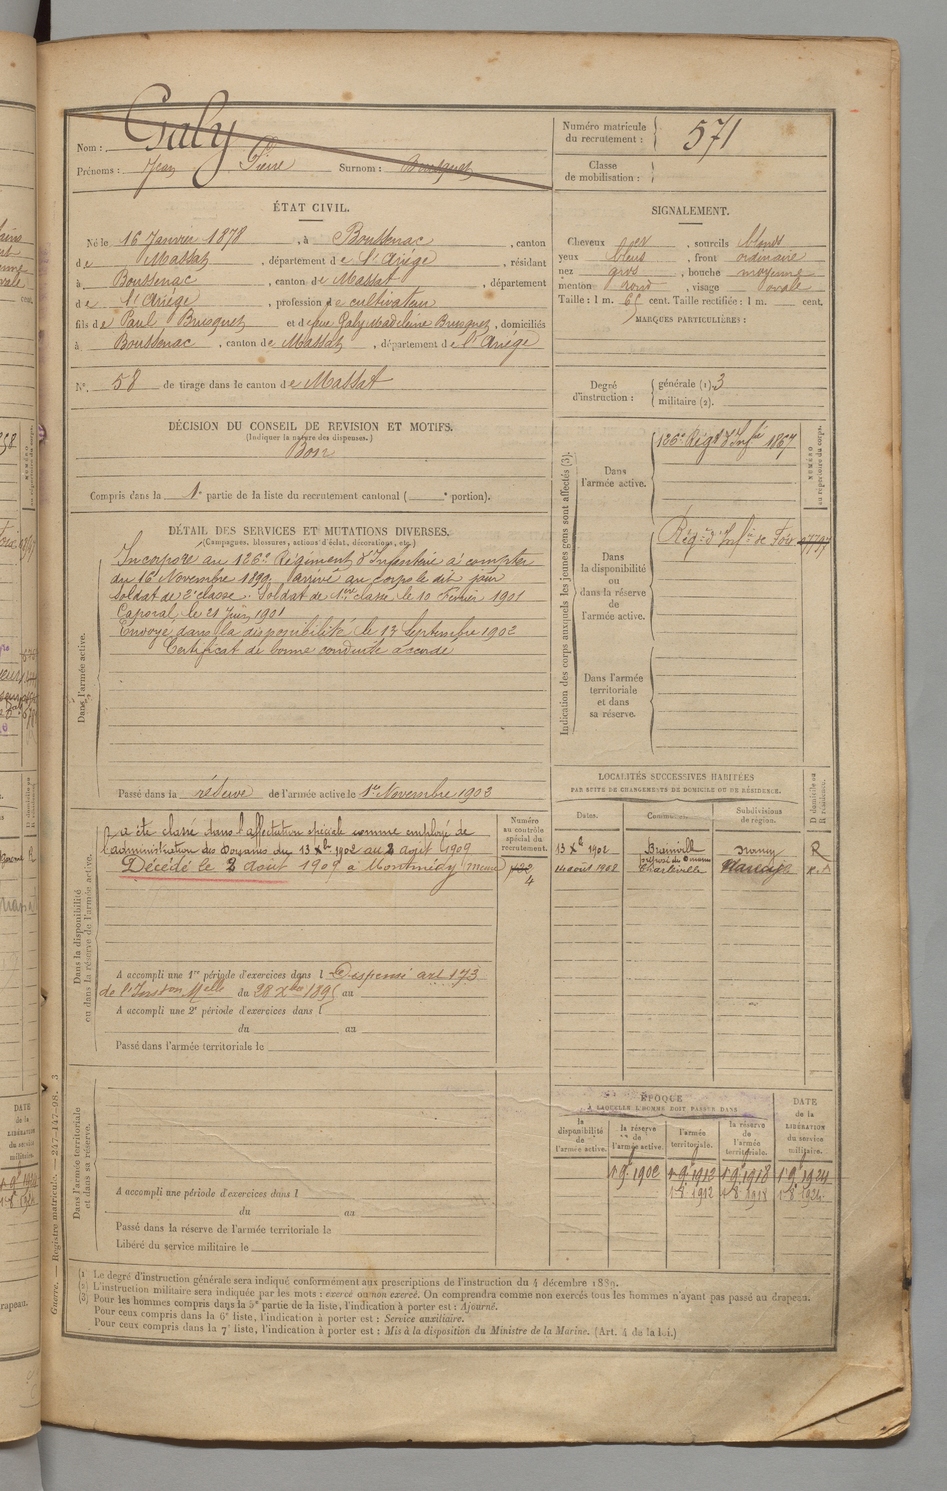 Nom : Galy
Numéro matricule du recrutement : 571
Prénoms : Jean Pierre Surnom : Busquet
Classe de mobilisation :
ÉTAT CIVIL.
Né le 16 Janvier 1878, à Boussenac, canton
de Massat, département de l'Ariège, résidant
à Boussenac, canton de Massat, département
de l'Ariège, profession de cultivateur
fils de Paul Busquet et de Galy Madeleine Busquet, domiciliés
à Boussenac, canton de Massat, département de l'Ariège
N° 58 de tirage dans le canton de Massat
SIGNALEMENT.
Cheveux , sourcils blonds
yeux bleus, front ordinaire
nez gros, bouche moyenne
menton rond, visage ovale
Taille : 1 m. 65 cent. Taille rectifiée : 1 m. cent.
MARQUES PARTICULIÈRES :
Degré d'instruction : générale (1). 3
militaire (2).
DÉCISION DU CONSEIL DE REVISION ET MOTIFS.
(Indiquer la nature des dispenses.)
Bon
Compris dans la 1e partie de la liste du recrutement cantonal ( e portion).
DÉTAIL DES SERVICES ET MUTATIONS DIVERSES.
(Campagnes, blessures, actions d'éclat, décorations, etc.)
Dans l'armée active.
Incorporé au 126e Régiment d'Infanterie à compter
du 16 Novembre 1899, arrivé au corps le dit jour
Soldat de 2e classe. Soldat de 1ere classe le 10 Février 1901
Caporal le 21 Juin 1901
Envoyé dans la disponibilité le 13 Septembre 1902
Certificat de bonne conduite accordé
Passé dans la réserve de l'armée active le 1er Novembre 1902
Indication des corps auxquels les jeunes gens sont affectés (3).
NUMÉRO au répertoire du corps.
Dans l'armée active.
126e Régt d'Infie
Dans la disponibilité ou dans la réserve de l'armée active.
Régt d'Infie de Foix
Dans l'armée territoriale et dans sa réserve.
Dans la disponibilité ou dans la réserve de l'armée active.
a été classé dans l'affectation spéciale comme employé de
l'administration des Douanes du 13 Xbre 1902 au 2 Août 1909
Décédé le 2 Août 1909 à Montmédy (Meuse)
Numéro au contrôle spécial du recrutement.
4
A accompli une 1re période d'exercices dans l Dispensé art 173
de l'Inston Melle du 28 Xbre 1895 au
A accompli une 2e période d'exercices dans l
du au
Passé dans l'armée territoriale le
LOCALITÉS SUCCESSIVES HABITÉES
PAR SUITE DE CHANGEMENTS DE DOMICILE OU DE RÉSIDENCE.
Dates. Communes. Subdivisions de région. D domicile ou R résidence.
13 Xbre 1902 Brainville Nancy R
préposé des Douanes
14 août 1908 Charleville
Dans l'armée territoriale et dans sa réserve.
A accompli une période d'exercices dans l
du au
Passé dans la réserve de l'armée territoriale le
Libéré du service militaire le
ÉPOQUE
À LAQUELLE L'HOMME DOIT PASSER DANS
la disponibilité de l'armée active.
la réserve de l'armée active.
l'armée territoriale.
la réserve de l'armée territoriale.
DATE de la LIBÉRATION du service militaire.
1 9e 1902 1 9e 1912 1 9e 1918 1 9e 1924
1 8e 1912 1 8e 1918 1 8e 1924
(1) Le degré d'instruction générale sera indiqué conformément aux prescriptions de l'instruction du 4 décembre 1889.
(2) L'instruction militaire sera indiquée par les mots : exercé ou non exercé. On comprendra comme non exercés tous les hommes n'ayant pas passé au drapeau.
(3) Pour les hommes compris dans la 5e partie de la liste, l'indication à porter est : Ajourné.
Pour ceux compris dans la 6e liste, l'indication à porter est : Service auxiliaire.
Pour ceux compris dans la 7e liste, l'indication à porter est : Mis à la disposition du Ministre de la Marine. (Art. 4 de la loi.)
Guerre. — Registre matricule. — 247-147-98. 3